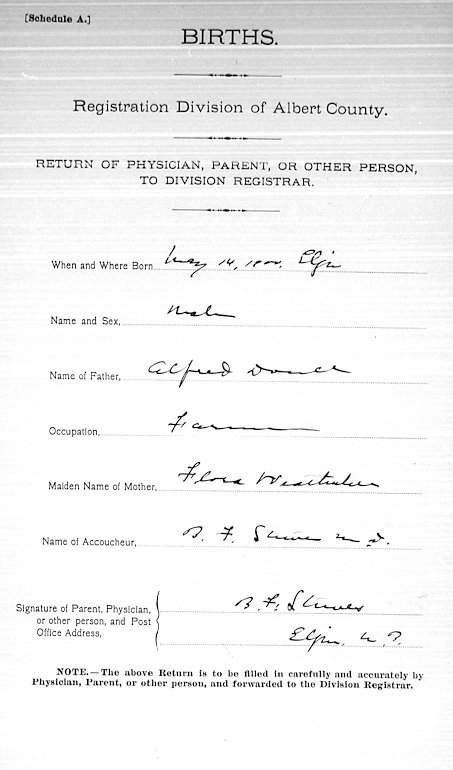 [Schedule A.]
BIRTHS.
Registration Division of Albert County.
RETURN OF PHYSICIAN, PARENT, OR OTHER PERSON,
TO DIVISION REGISTRAR.
When and Where Born May 14, 1900. Elgin
Name and Sex, Male
Name of Father, Alfred
Occupation, Farmer
Maiden Name of Mother, Flora
Name of Accoucheur, B. F. M.D.
Signature of Parent, Physician, B. F.
or other person, and Post
Office Address, Elgin, N. B.
NOTE.—The above Return is to be filled in carefully and accurately by
Physician, Parent, or other person, and forwarded to the Division Registrar.